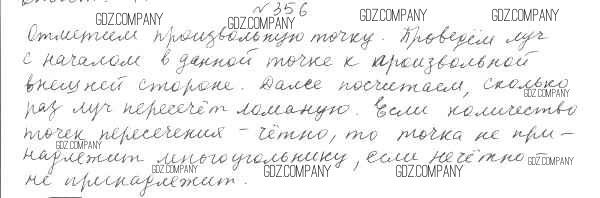 №356
Отметим произвольную точку. Проведём луч
с началом в данной точке к произвольной
внешней стороне. Далее посчитаем, сколько
раз луч пересечёт ломаную. Если количество
точек пересечения - чётно, то точка не при-
надлежит многоугольнику, если нечётно -
не принадлежит.
GDZ.COMPANY
GDZ.COMPANY
GDZ.COMPANY
GDZ.COMPANY
GDZ.COMPANY
GDZ.COMPANY
GDZ.COMPANY
GDZ.COMPANY
GDZ.COMPANY
GDZ.COMPANY